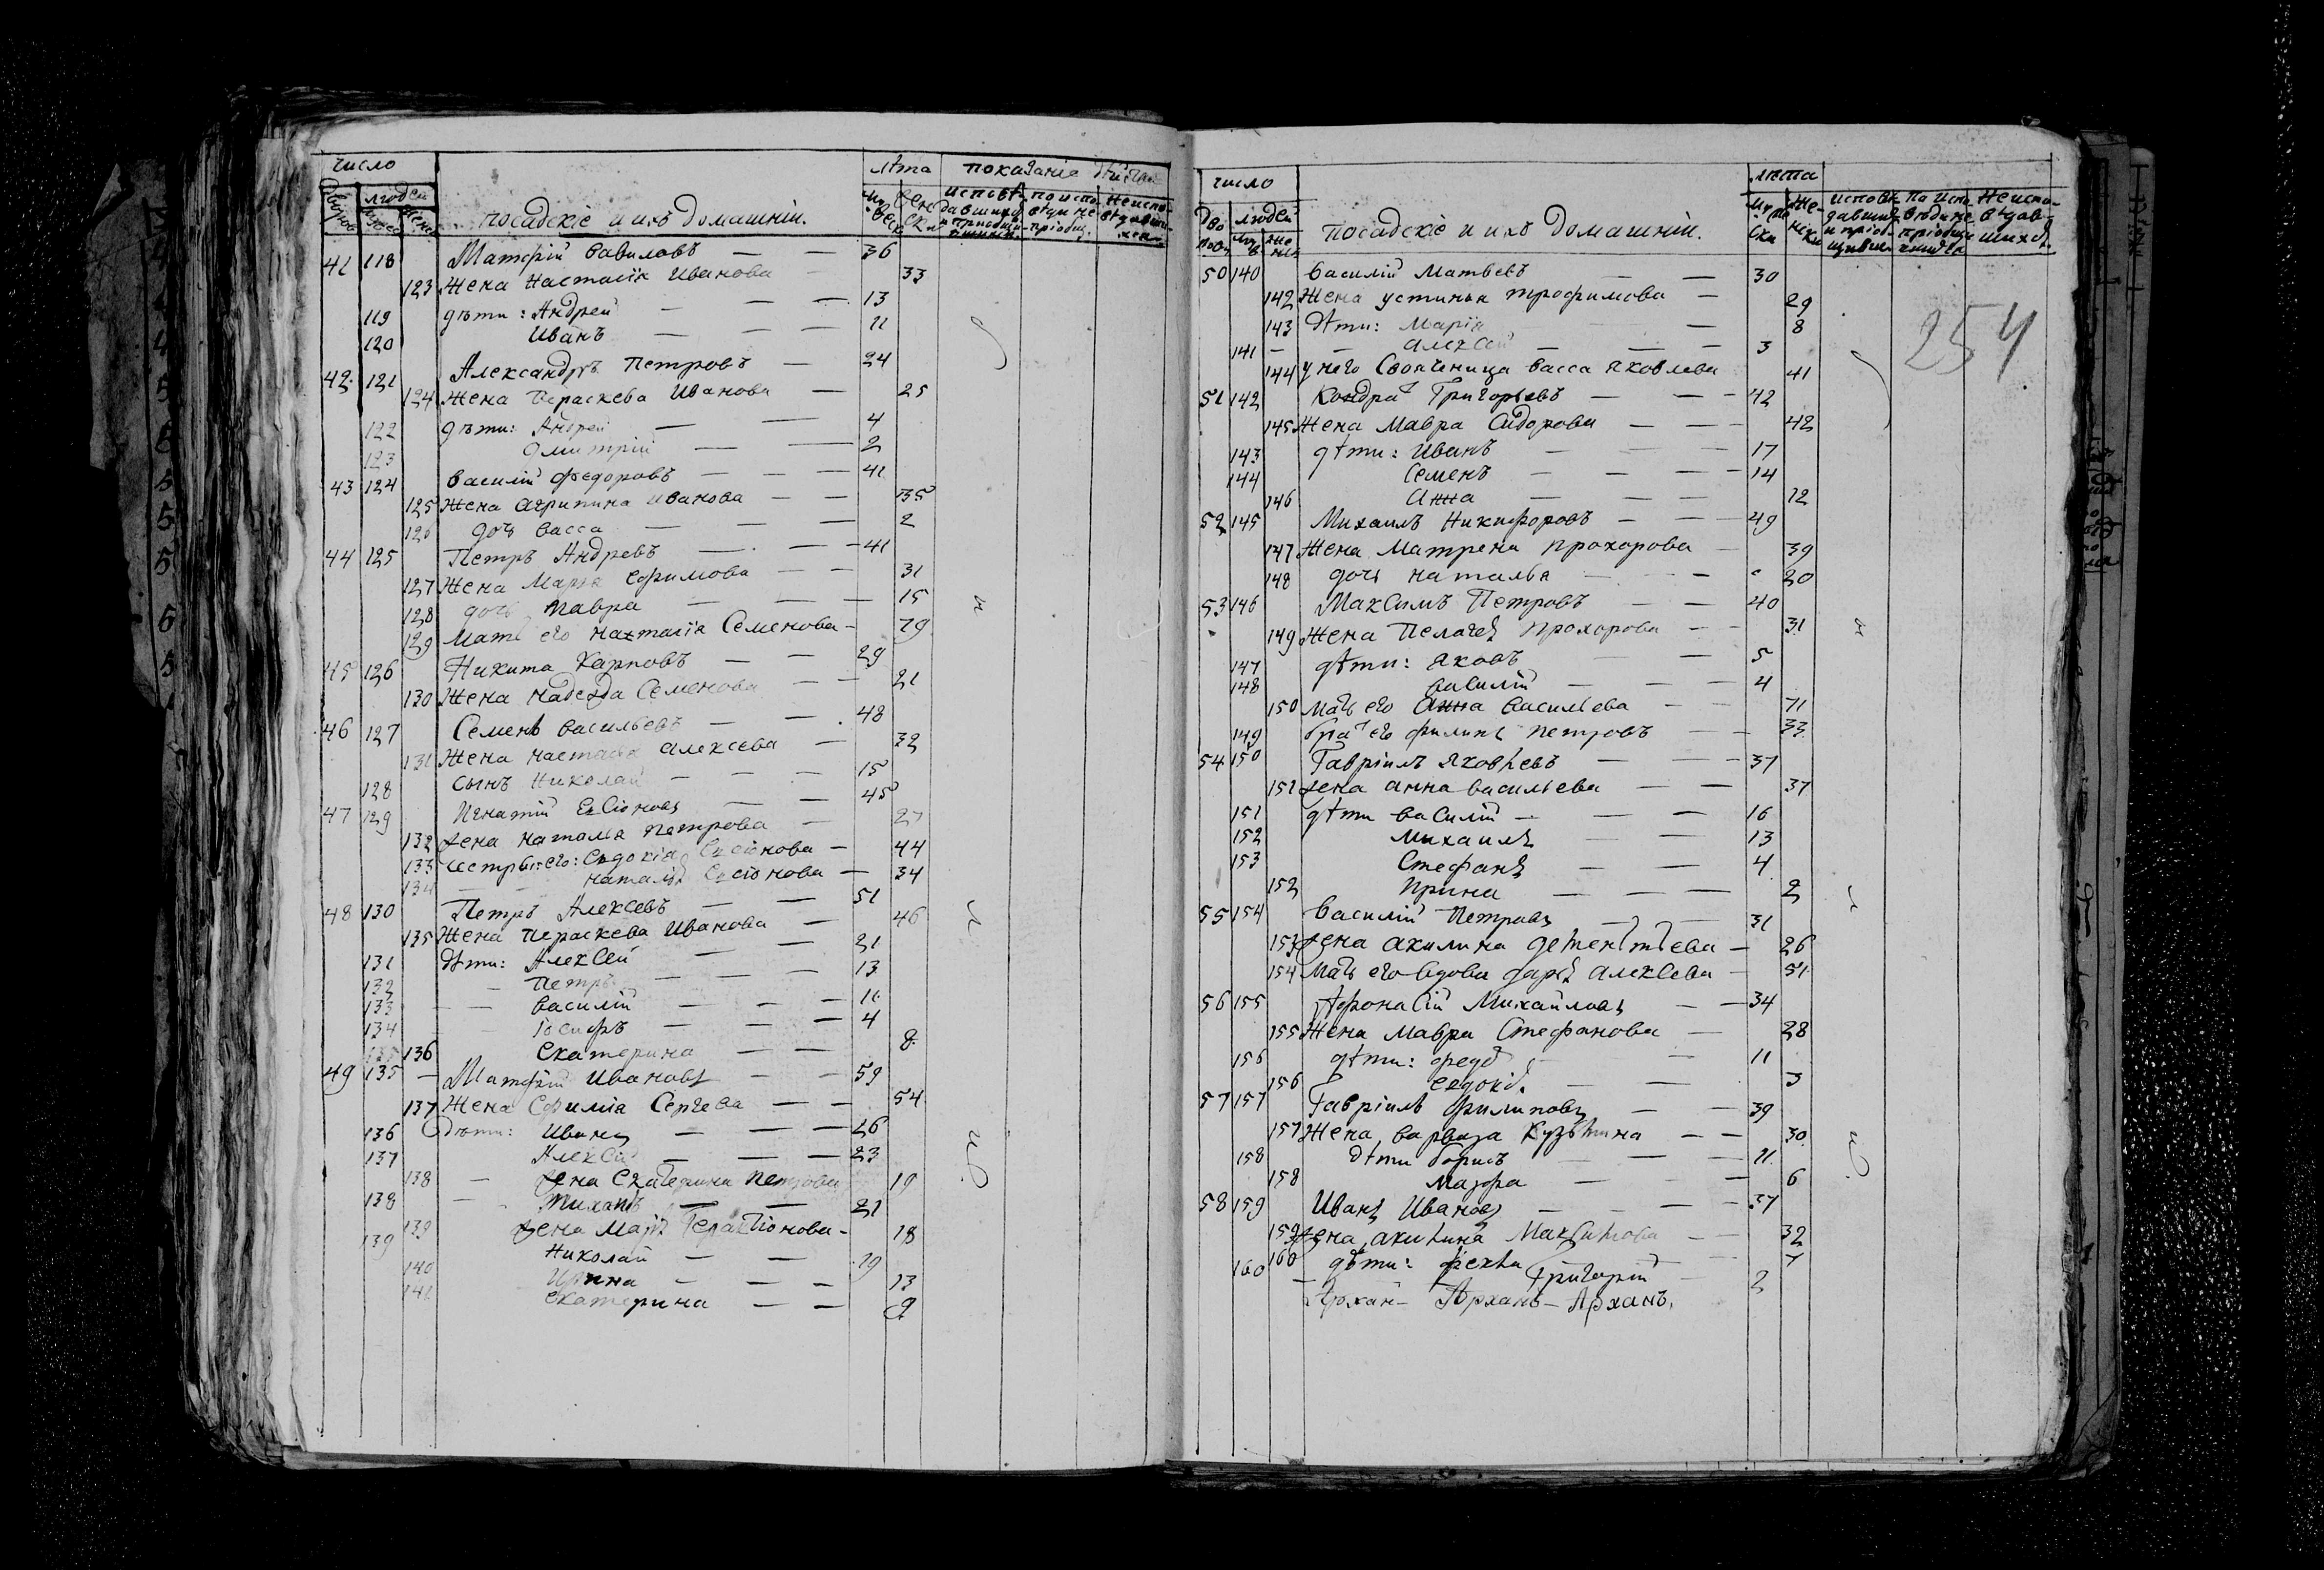 число
лѣта показанiе
дворов людей
посадскiе и ихъ домашнiи.
41 118 Матфiй Вавиловъ — — 36
123 Жена Настасiя Иванова — 33
119 дѣти: Андрей — — — 13
120 Иванъ — — — 11
42 121 Александръ Петровъ — 24
124 Жена Параскева Иванова — 25
122 дѣти: Андрей — — 4
123 Дмитрiй — — 2
43 124 Василiй Федоровъ — — — 41
125 Жена Агрипина Иванова — — 35
126 дочь Васса — — — 2
44 125 Петръ Андревъ — — — 41
127 Жена Марiя Ефимова — — 31
128 дочь Мавра — — — 15
129 Мать его Наталiя Семенова — 79
45 126 Никита Карповъ — — 29
130 Жена Надезда Семенова — — 21
46 127 Семенъ Васильевъ — — 48
131 Жена Настасья Алексева — 32
128 сынъ Николай — — — 15
47 129 Игнатiй — — 45
132 жена Наталья Петрова — 27
133 сестры его: Евдокiя — 44
134 Наталья — 34
48 130 Петръ Алексевъ — — 51
135 Жена Параскева Иванова — 46
131 дѣти: Алексей — — 21
132 — Петръ — — — 13
133 — — Василiй — — — 11
134 — — Iосифъ — — — 4
136 Екатерина — — 8
49 135 — Матфiй Ивановъ — — 59
137 Жена Ефимiа Сергева — — 54
136 дѣти: Иванъ — — — 26
137 Алексей — — — 23
138 — жена Екатерина Петрова 19
138 — Тиханъ — — 21
139 жена Марiя — 18
139 Николай — — 19
140 Ирина — — 13
141 Екатерина — — 9
число лѣта
людей
посадскiе и ихъ домашнiи.
254
50 140 Василiй Матвевъ — — 30
142 Жена Устинья Трофимова — 29
143 дѣти: Марiя — 8
141 — — Алексей — — — 3
144 у него Своячница Васса Яковлева 41
51 142 Кондрат Григорьевъ — — — 42
145 Жена Мавра Сидорова — — — 42
143 дѣти: Иванъ — — — 17
144 Семенъ — — — 14
146 Анна — — — 12
52 145 Михаилъ Никифоровъ — — — 49
147 Жена Матрена Прохорова — 39
148 дочь Наталья — — — 20
53 146 Максимъ Петровъ — — 40
149 Жена Пелагея Прохорова — — 31
147 дѣти: Яковъ — — 5
148 Василiй — — — 4
150 мать его Анна Васильева — — 71
149 брат его Филипъ Петровъ — — 33
54 150 Гаврiилъ Яковлевъ — — — 37
151 жена Анна Васильева — — 37
151 дѣти Василiй — — — 16
152 Михаилъ — — 13
153 Стефанъ — — 4
152 Ирина — — — 2
55 154 Василiй Петровъ — — 31
153 жена Акилина — 26
154 Мать его вдова Дарья Алексева — 51
56 155 Афонасiй Михайловъ — — 34
155 Жена Мавра Стефанова — 28
156 дѣти: — — 11
156 Евдокiя — — 3
57 157 Гаврiилъ Филиповъ — — 39
157 Жена Кузьмина — — 30
158 дѣти Борисъ — — — 11
158 Марфа — — — 6
58 159 Иванъ Ивановъ — — — — 37
159 жена Акилина Максимова — — 32
160 дѣти: Фекла 7
160 — Григорiй 2
Архан- Арханъ- Арханъ.